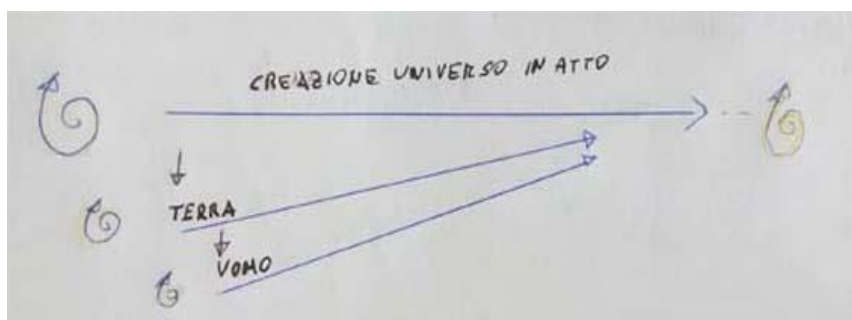 CREAZIONE UNIVERSO IN ATTO
TERRA
UOMO